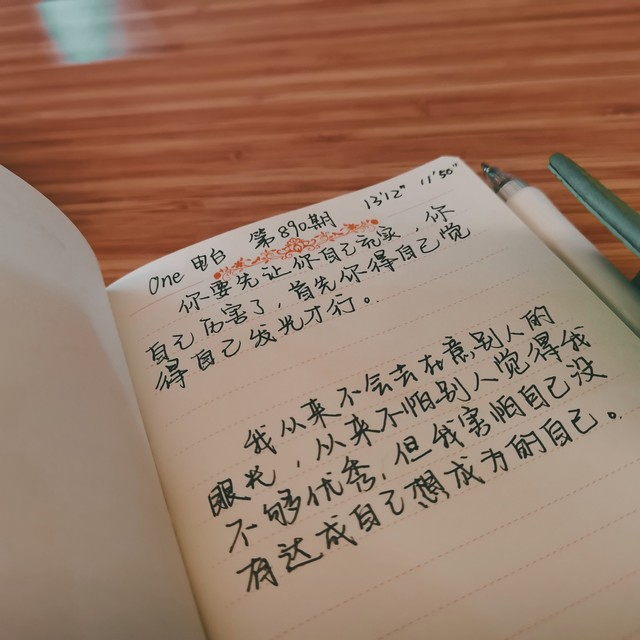 One 电台 第890期 13'12" 11'50"
你要先让你自己充实,你
自己厉害了,首先你得自己觉
得自己发光才行。
我从来不会去在意别人的
眼光,从来不怕别人觉得我
不够优秀,但我害怕自己没
有达成自己想成为的自己。